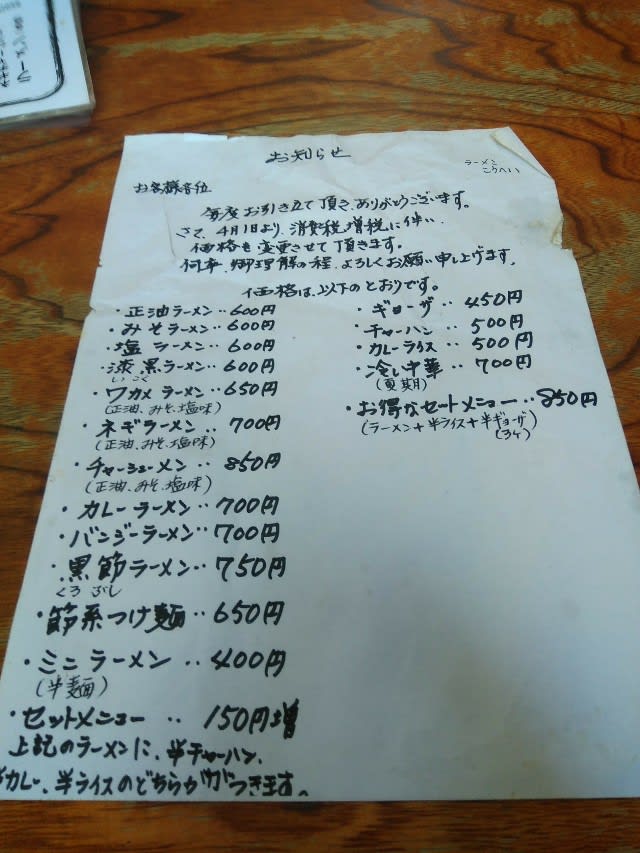 お知らせ
ラーメン
こうへい
お客様各位
毎度お引き立て頂き、ありがとうございます。
さて、4月1日より、消費税増税に伴い、
価格を変更させて頂きます。
何卒、御理解の程、よろしくお願い申し上げます。
価格は、以下のとおりです。
・正油ラーメン‥600円
・みそラーメン‥600円
・塩ラーメン‥600円
・漆黒ラーメン‥600円
しっこく
・ワカメラーメン‥650円
(正油、みそ、塩味)
・ネギラーメン‥700円
(正油、みそ、塩味)
・チャーシューメン‥850円
(正油、みそ、塩味)
・カレーラーメン‥700円
・バンジーラーメン‥700円
・黒節ラーメン‥750円
くろぶし
・節系つけ麺‥650円
・ミニラーメン‥400円
(半麺)
・セットメニュー‥150円増
上記のラーメンに、半チャーハン、
半カレー、半ライスのどちらかがつきます。
・ギョーザ‥450円
・チャーハン‥500円
・カレーライス‥500円
・冷し中華‥700円
(夏期)
・お得なセットメニュー‥850円
(ラーメン+半ライス+半ギョーザ)
(3ヶ)
ラーメン